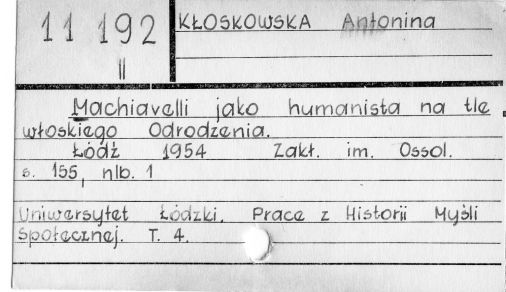 11 192
II
KŁOSKOWSKA Antonina
Machiavelli jako humanista na tle
włoskiego Odrodzenia.
Łódź 1954 Zakł. im. Ossol.
s. 155, nlb. 1
Uniwersytet Łódzki. Prace z Historii Myśli
Społecznej. T. 4.